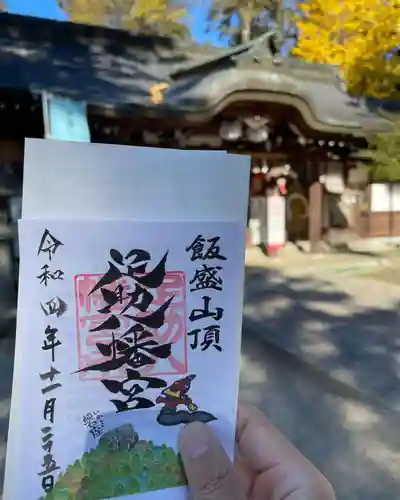 飯盛山頂
足助八幡宮
令和四年十一月二十五日